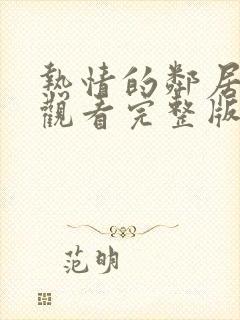 熱情的鄰居
觀看完整版
范明